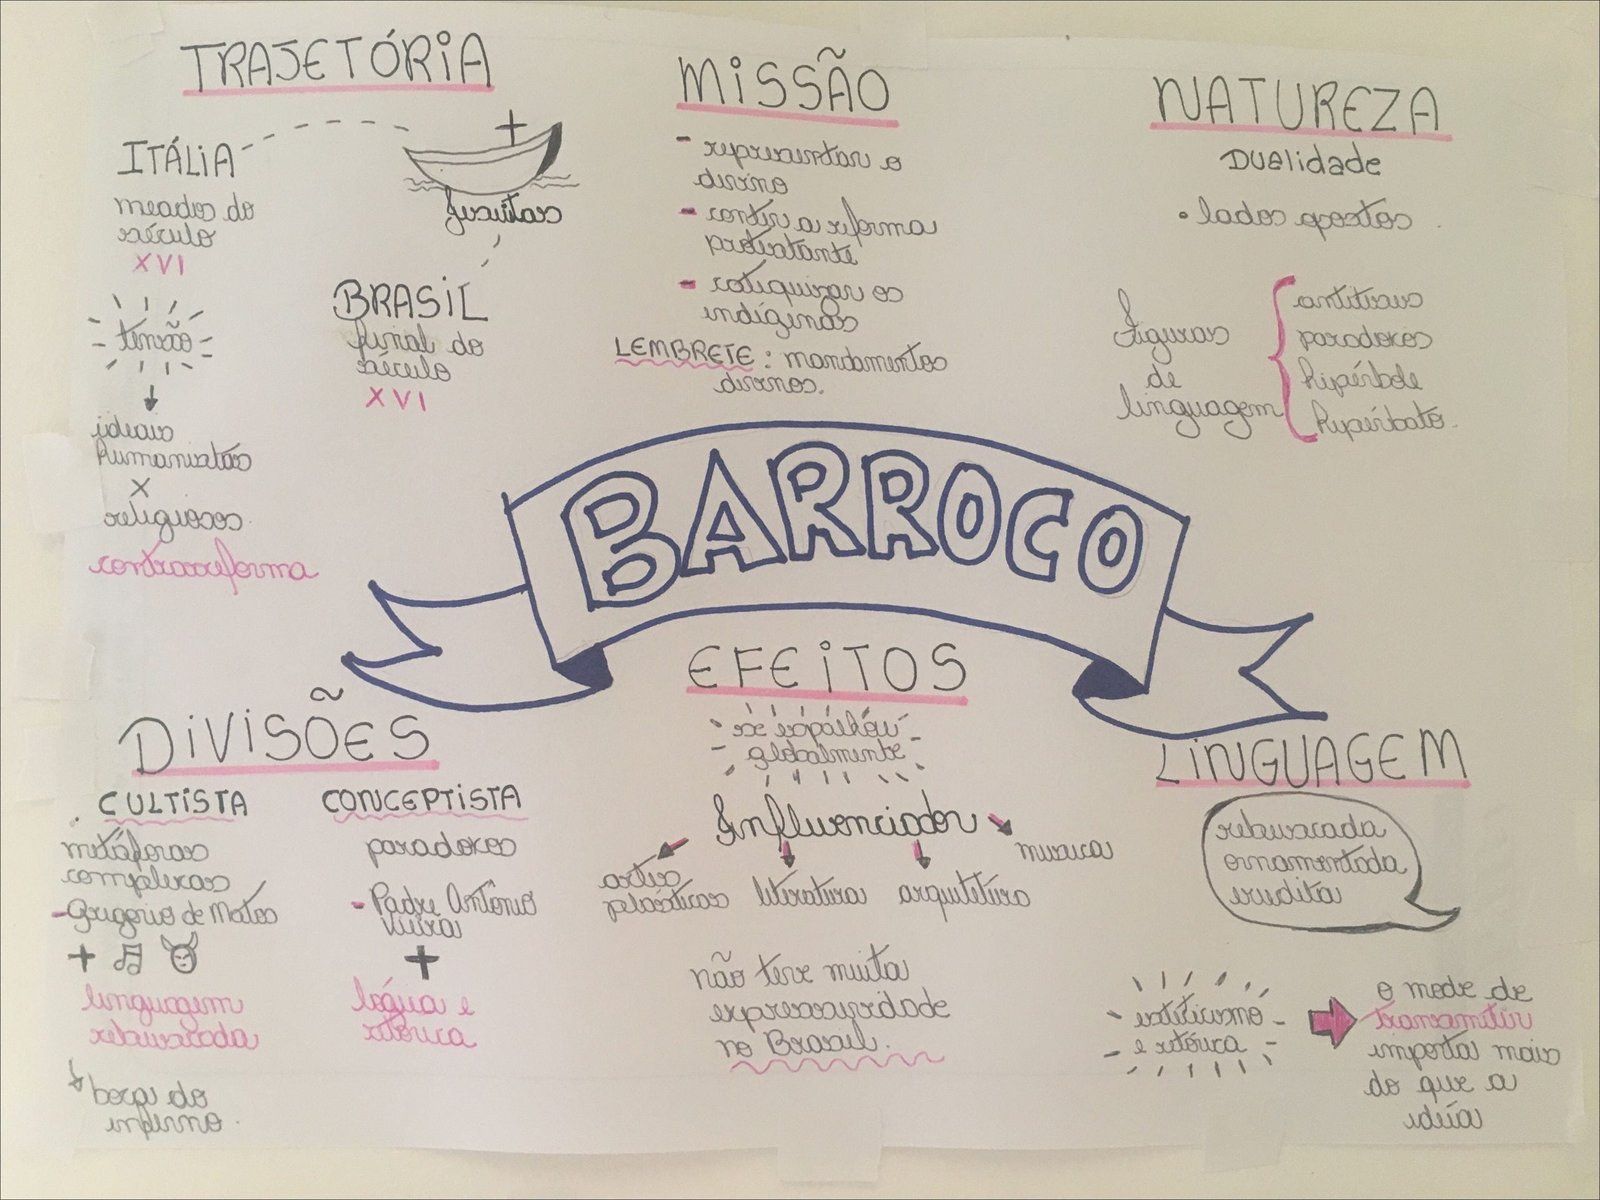 TRAJETÓRIA
ITÁLIA
meados do
século
XVI
tensão
ideais
humanistas
X
religiosos
contrarreforma
jesuítas
BRASIL
final do
século
XVI
MISSÃO
- representar o
divino
- conter a reforma
protestante
- catequizar os
indígenas
LEMBRETE: mandamentos
divinos.
NATUREZA
Dualidade
• lados opostos
Figuras
de
linguagem
antíteses
paradoxos
hipérbole
hipérbato
BARROCO
DIVISÕES
. CULTISTA
metáforas
complexas
- Gregório de Matos
+
linguagem
rebuscada
boca do
inferno.
CONCEPTISTA
paradoxos
- Padre Antônio
Vieira
+
lógica e
retórica
EFEITOS
se espalhou
globalmente
Influenciador
artes
plásticas
literatura
arquitetura
música
não teve muita
expressividade
no Brasil.
LINGUAGEM
rebuscada
ornamentada
erudita
esteticismo
e retórica
o modo de
transmitir
importa mais
do que a
ideia